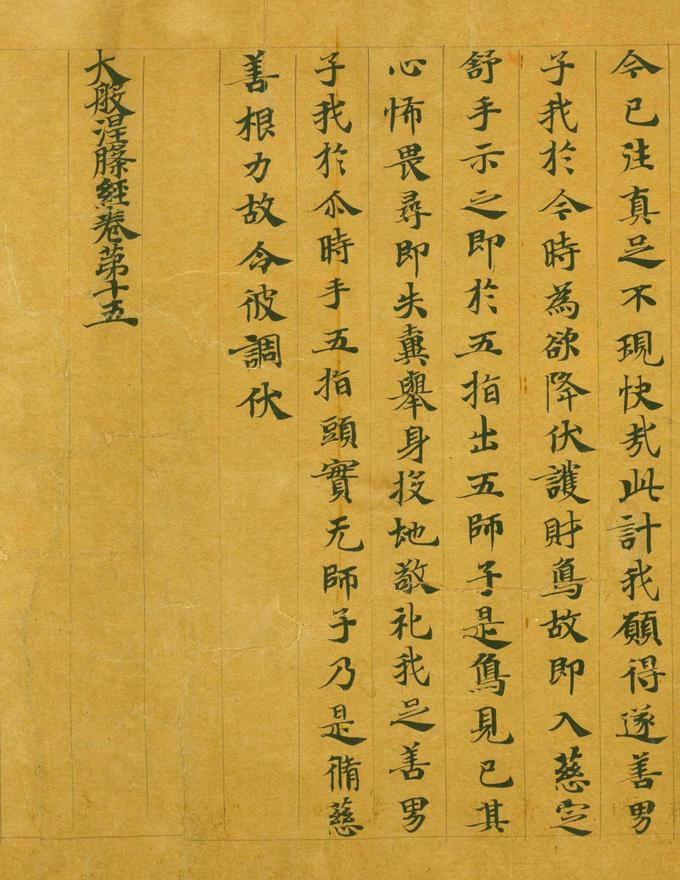 今已往真是不現快哉此計我願得遂善男
子我於今時為欲降伏護財鳥故即入慈定
舒手示之即於五指出五師子是鳥見已其
心怖畏尋即失糞舉身投地敬礼我足善男
子我於尒時手五指頭實无師子乃是脩慈
善根力故令彼調伏
大般涅槃經卷第十五